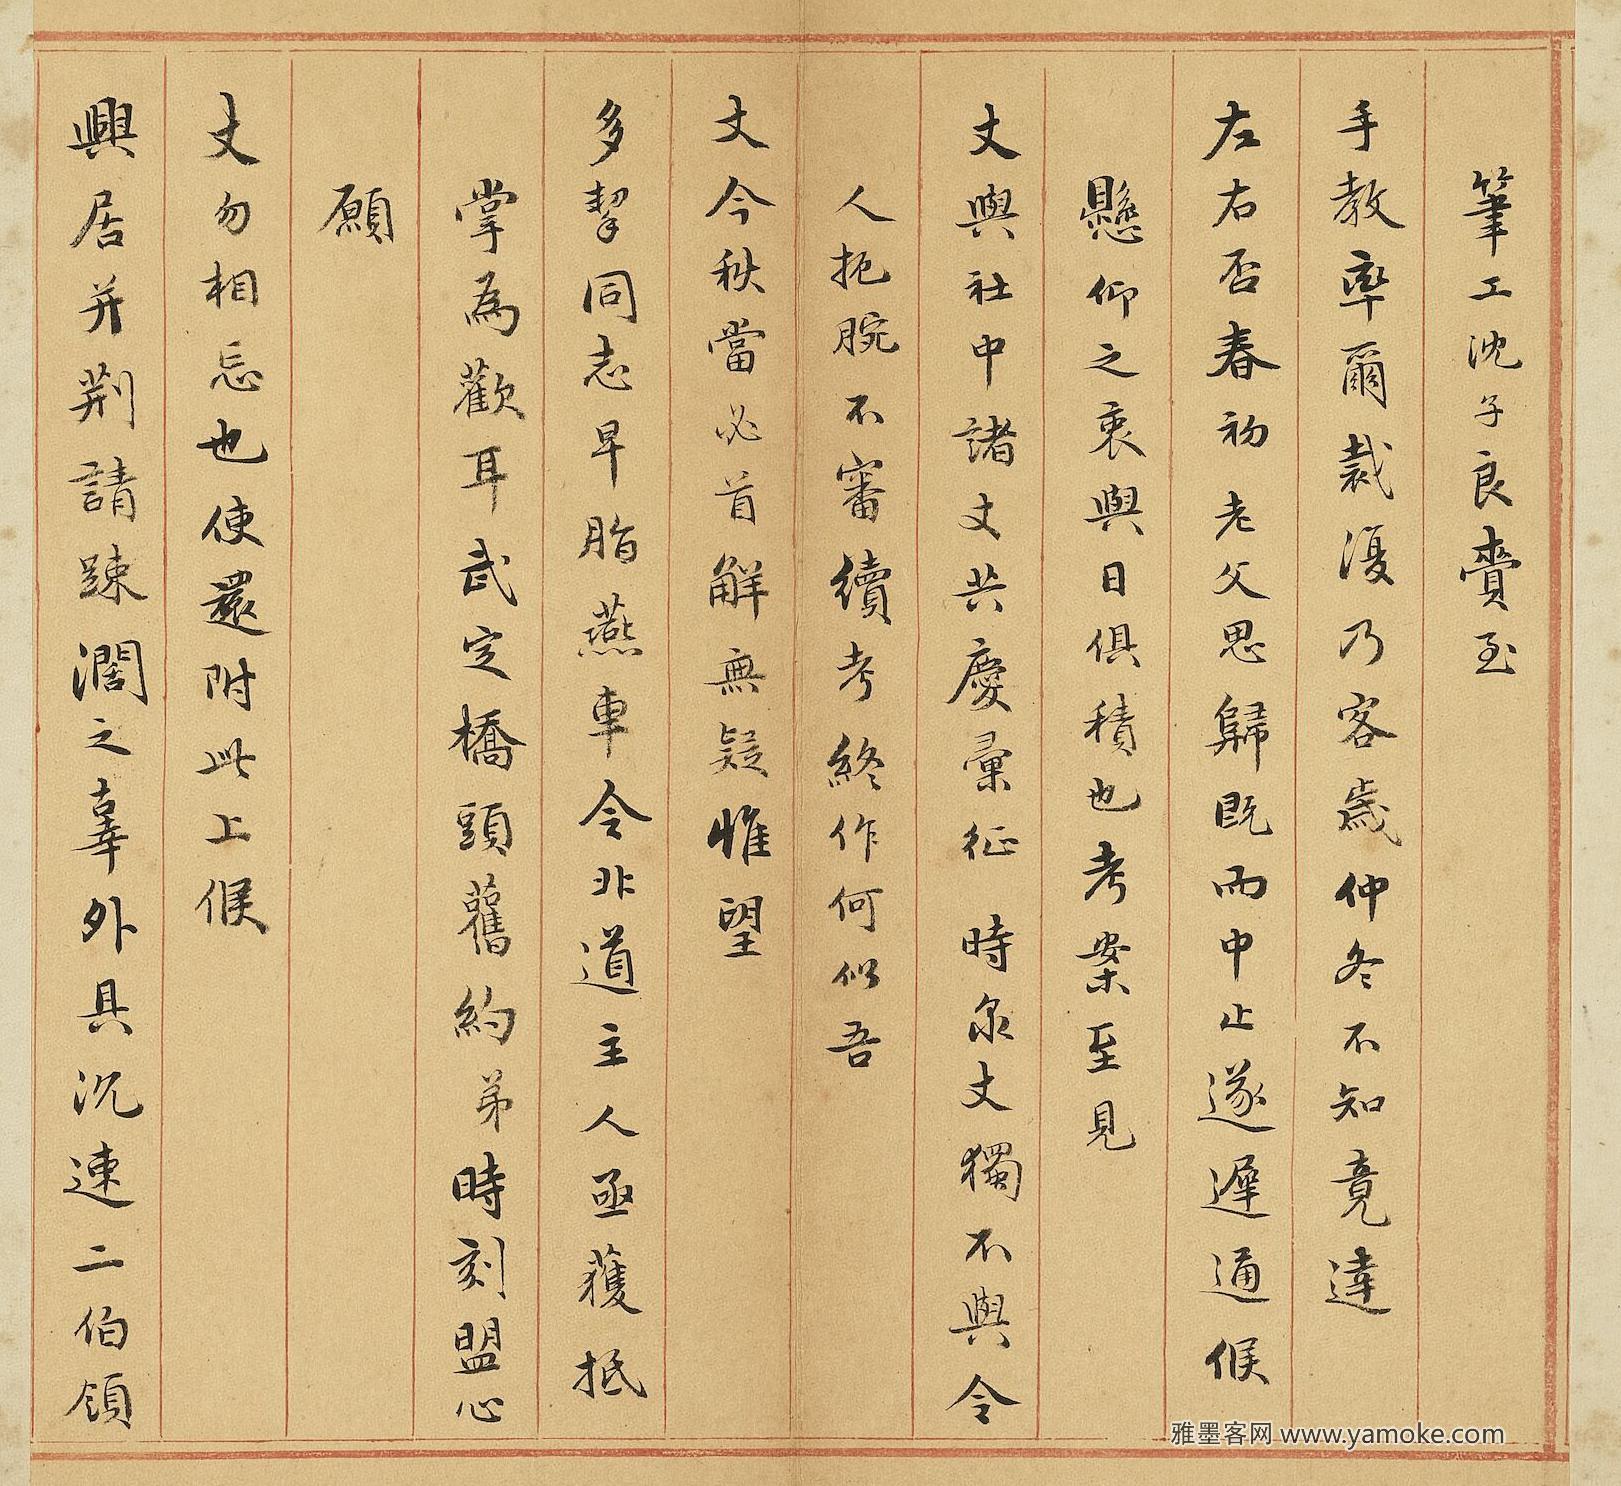 筆工沈子良賫至
手教率爾裁復乃客歲仲冬不知竟達
左右否春初老父思歸既而中止遂遲通候
懸仰之衷與日俱積也考案至見
丈與社中諸丈共慶彙征時泉丈獨不與令
人扼腕不審續考終作何似吾
丈今秋當必首解無疑惟望
多挈同志早脂燕車令非道主人亟獲抵
掌為歡耳武定橋頭舊約弟時刻盟心
願
丈勿相忘也使還附此上候
興居并荆請踈濶之辜外具沉速二伯領
雅墨客网 www.yamoke.com